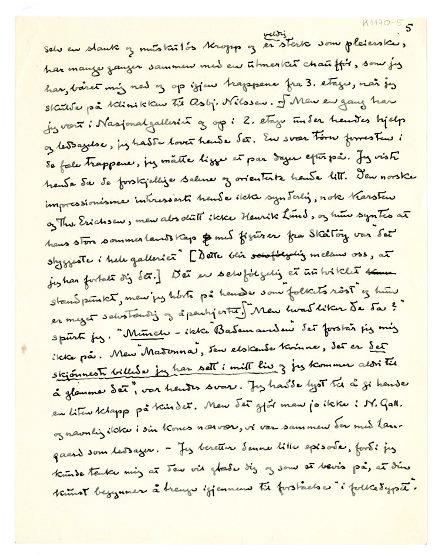 K1170-5
5
selv en slank og muskuløs kropp og er veldig sterk som pleierske,
har mange ganger sammen med en utmerket chauffør, som jeg
har, båret mig ned og op igjen trappene fra 3. etage, når jeg
skulde på klinikken til Asbj. Nilssen. Men en gang har
jeg vært i Nasjonalgalleriet og op i 2. etage under hendes hjelp
og ledsagelse, jeg hadde lovet hende det. En svær tørn forresten i
de fæle trappene, jeg måtte ligge et par dager efterpå. Jeg viste
hende da de forskjellige salene og orienterte hende litt. Den norske
impressionisme interesserte hende ikke synderlig, nok Karsten
og Th. Erichsen, men absolutt ikke Henrik Lund, og hun syntes at
hans store sommerlandskap med figurer fra Skåtøy var "det
styggeste i hele galleriet" [Dette blir selvfølgelig mellem oss, at
jeg har fortalt dig det.] Det er selvfølgelig et uutviklet
standpunkt, men jeg hørte på hende som "folkets røst" og hun
er meget selvstendig og åpenhjertet. "Men hvad liker De da?"
spurte jeg. "Munch – ikke Bademanden" det forstår jeg mig
ikke på. Men "Madonna", den elskende kvinne, det er det
skjønneste billede jeg har sett i mitt liv og jeg kommer aldri til
å glemme det", var hendes svar. Jeg hadde lyst til å gi hende
en liten klapp på kindet. Men det gjør man jo ikke i N. Gall.
og navnlig ikke i sin kones nærvær, vi var sammen der med Lan-
gaard som ledsager. – Jeg beretter denne lille episode, fordi jeg
kunde tenke mig at den vil glæde dig og som et bevis på, at din
kunst begynner å trenge igjennem til forståelse "i folkedypet".